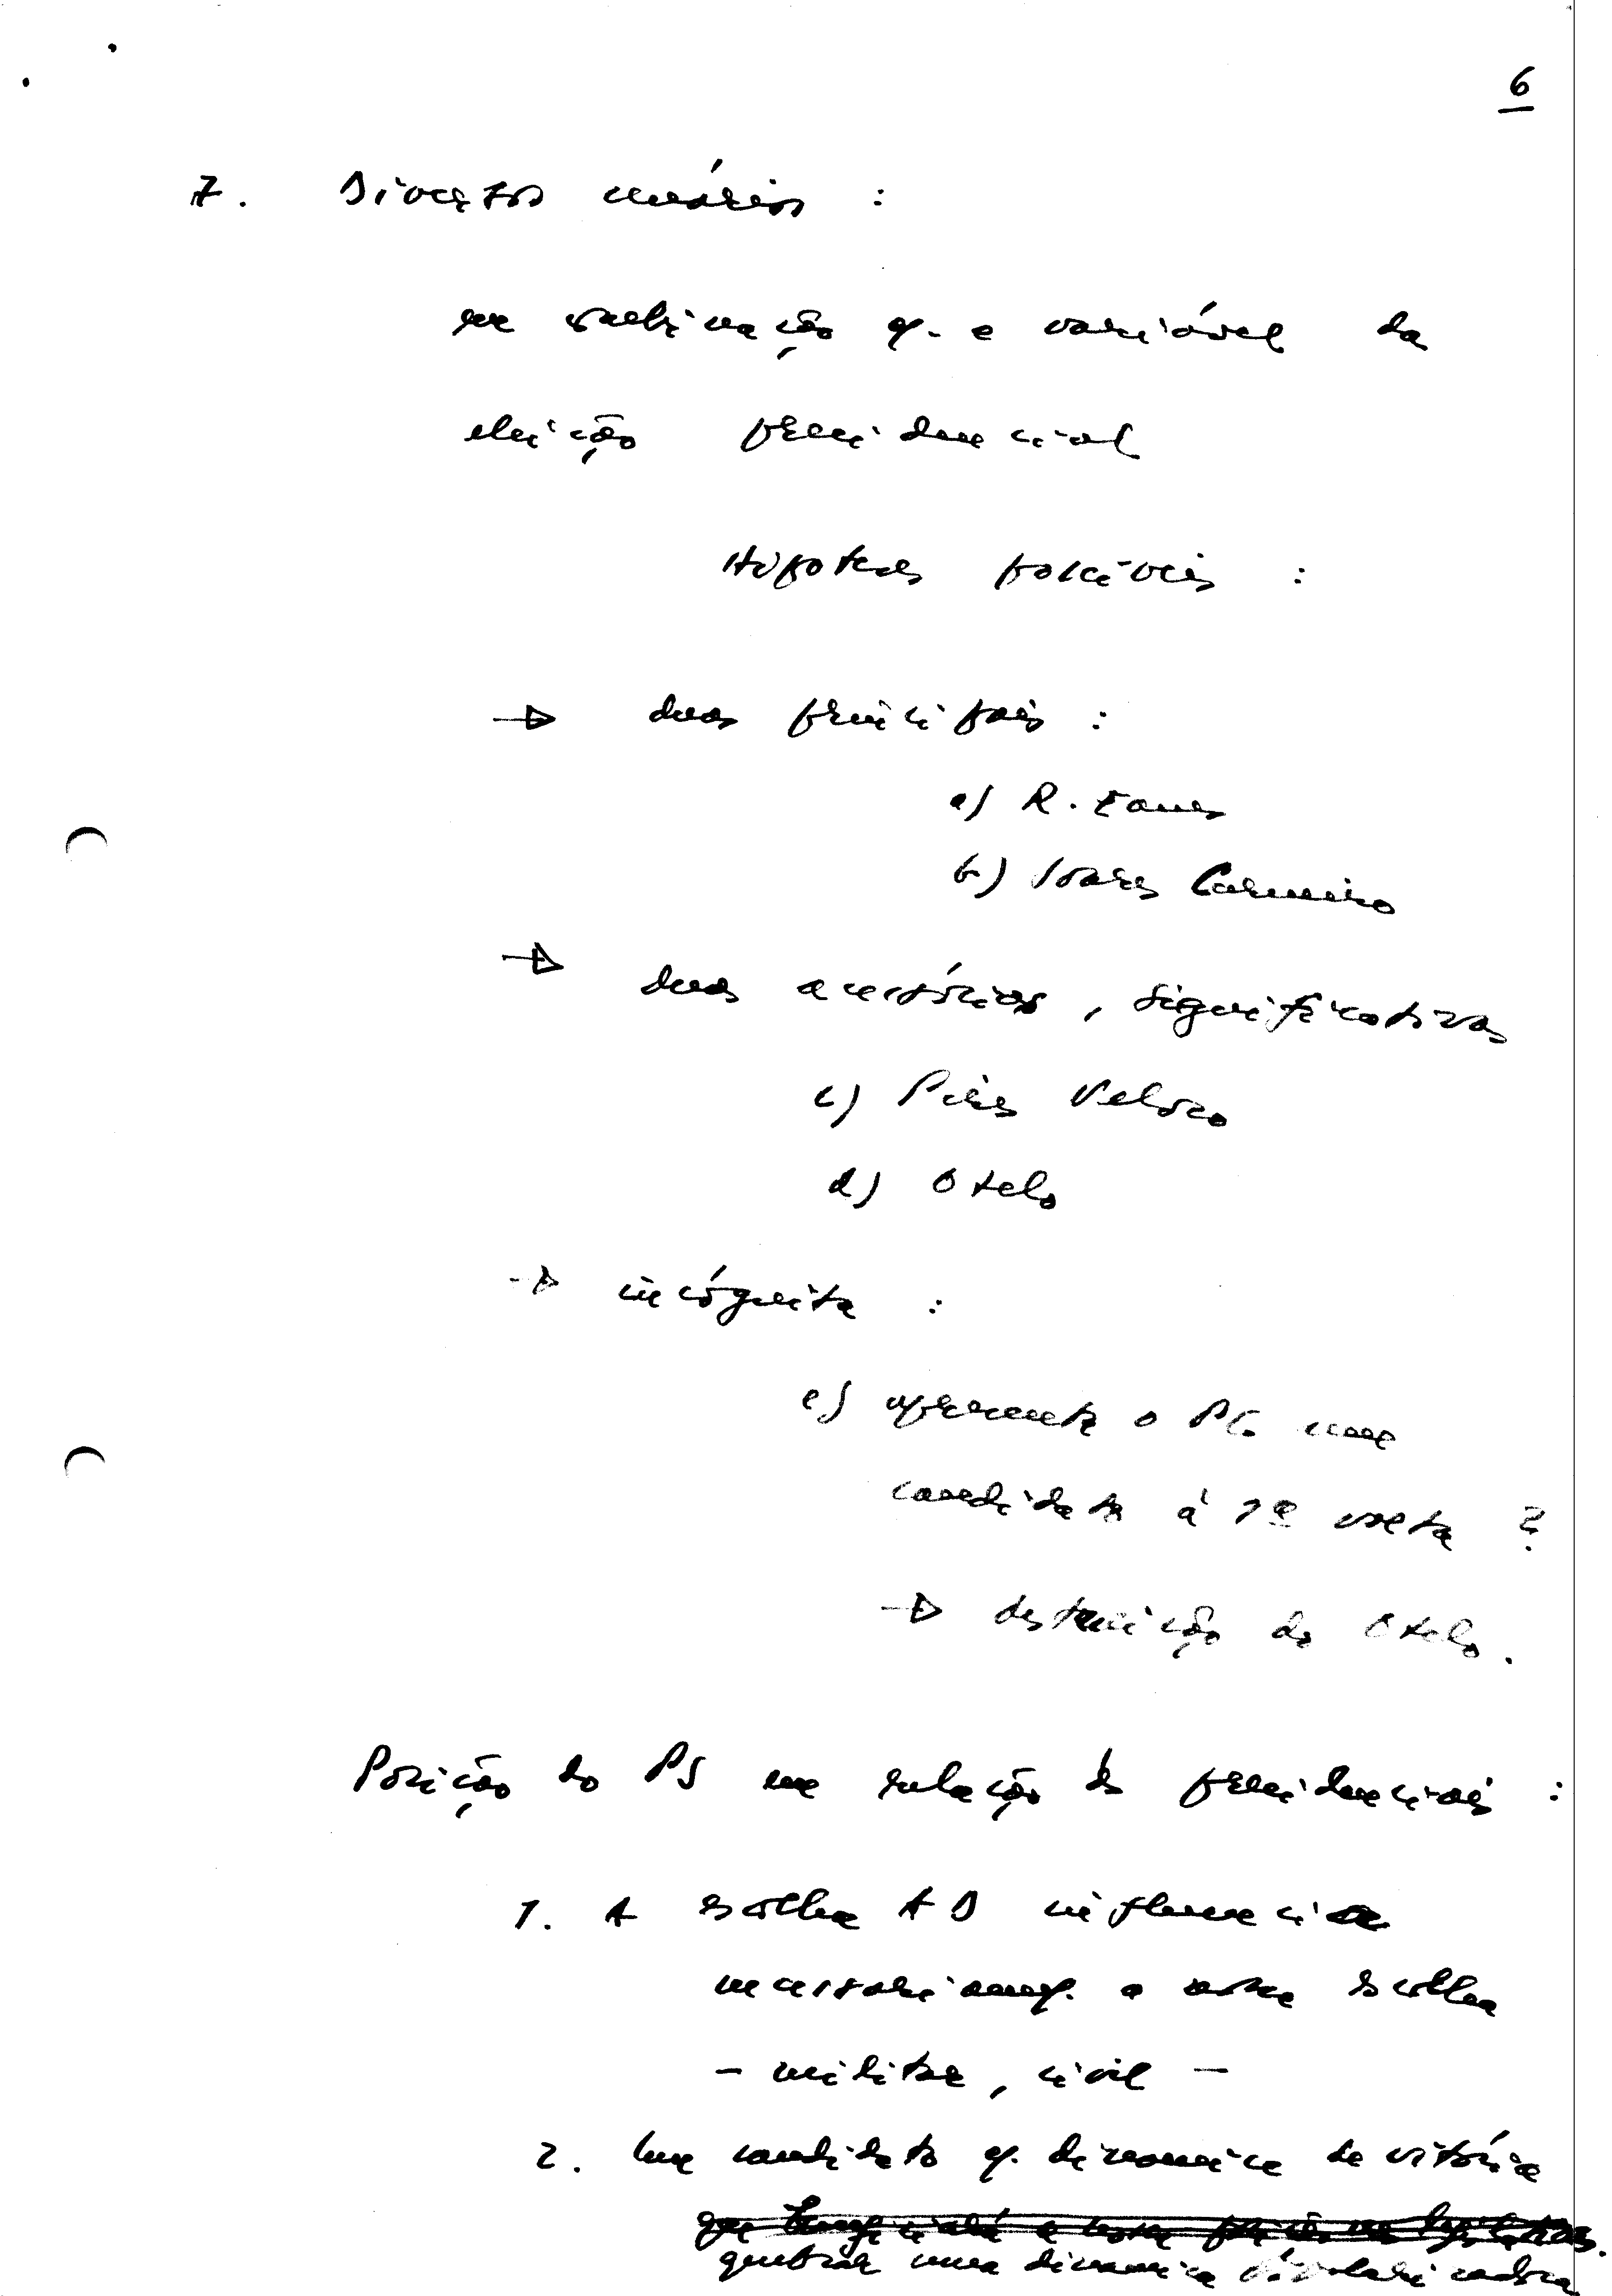 6
7. Diversos cenários :
em combinação c/ a variável da
eleição presidencial
Hipoteses possíveis :
→ duas principais :
a) R. Eanes
b) Soares Carneiro
→ duas acessórias, significativas
c) Pires Veloso
d) Otelo
→ incógnita :
e) apresenta o PC um
candidato à 1ª volta ?
→ destruição do Otelo.
Posição do PS em relação às presidenciais :
1. A escolha AD influencia
necessariamente a nossa escolha
- militar, civil -
2. Um candidato c/ dinamica de vitória
quebrar uma dinamica bipolarizadora